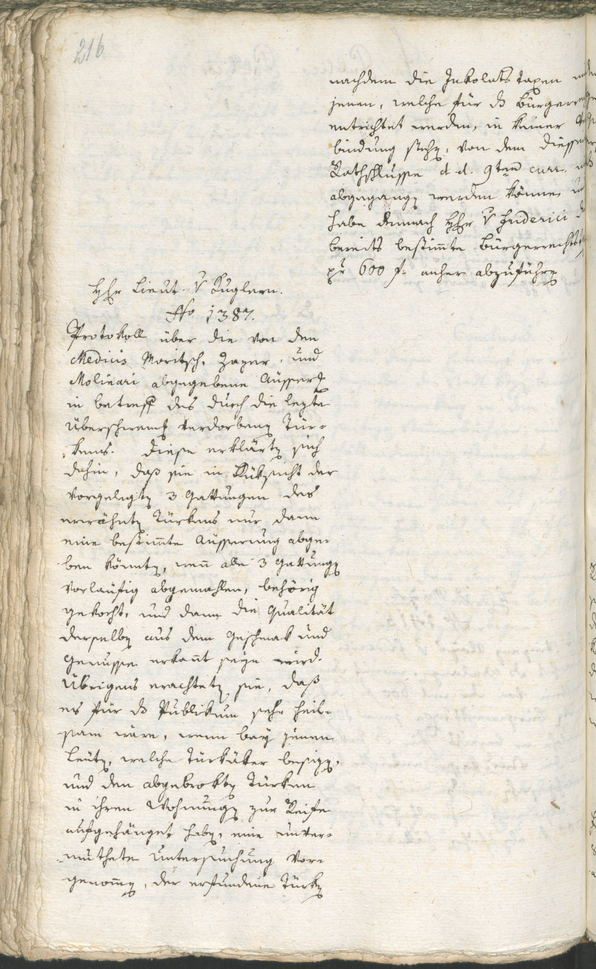 216
nachdem die Inkolats taxen
jenen, welche für ds Bürger
entrichtet werden, in keiner
bindung steht, von dem dießf
Rathschlusse d. d. 9ten curr.
abgegangen werden könne,
habe demnach Hhr v Friderici
bereits bestimmte Bürgerrechts
pr 600 f. anher abzuführen
Hhr Lieut. v Kuglern.
No 1387.
Protokoll über die von den
Medicis Moritsch, Zager, und
Molinari abgegebene Äusserg
in betreff des durch die lezte
Überschwem̄g verdorbenen Tür-
kens. Diese erklärten sich
dahin, daß sie in Rüksicht der
vorgelegten 3 Gattungen des
erwähnten Türkens nur dann
eine bestimmte Äusserung abge-
ben könnten, wen̄ alle 3 Gattungen
vorläufig abgemahlen, behörig
gekocht, und dann die Qualität
derselben aus dem Geschmak und
Genusse erkannt seyn wird.
Übrigens erachteten sie, daß
es für ds Publikum sehr heil-
sam wäre, wenn bey jenen
Leuten, welche Türkäker besizen,
und den abgebrokten Türken
in ihren Wohnungen zur Reife
aufgehänget haben, eine unver-
muthete Untersuchung vor-
genom̄en, der erfundene Türken